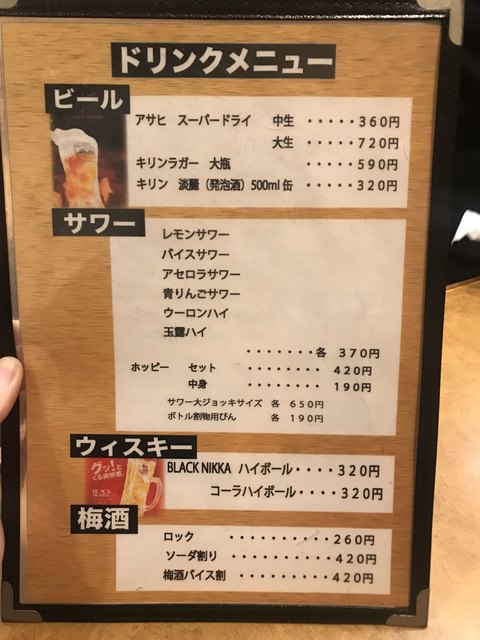 ドリンクメニュー
ビール
アサヒ スーパードライ 中生 ・・・・・360円
大生 ・・・・・720円
キリンラガー 大瓶 ・・・・・・590円
キリン 淡麗（発泡酒）500ml缶 ・・・・・320円
サワー
レモンサワー
バイスサワー
アセロラサワー
青りんごサワー
ウーロンハイ
玉露ハイ
・・・・・・・各 370円
ホッピー セット ・・・・・・・・ 420円
中身 ・・・・・・・・ 190円
サワー大ジョッキサイズ 各 650円
ボトル割物用びん 各 190円
ウィスキー
グッ!と
くる爽快感。
BLACK
BLACK NIKKA ハイボール・・・・320円
コーラハイボール・・・・320円
梅酒
ロック ・・・・・・・・・・260円
ソーダ割り ・・・・・・・・・420円
梅酒バイス割 ・・・・・・・・・420円